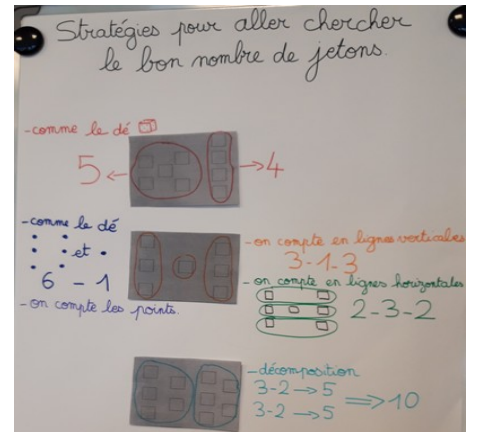 Stratégies pour aller chercher
le bon nombre de jetons.
-comme le dé
5 ← → 4
-comme le dé
et
6 - 1
-on compte les points.
-on compte en lignes verticales
3-1-3
-on compte en lignes horizontales
2-3-2
-décomposition
3-2 → 5
3-2 → 5
⇒ 10